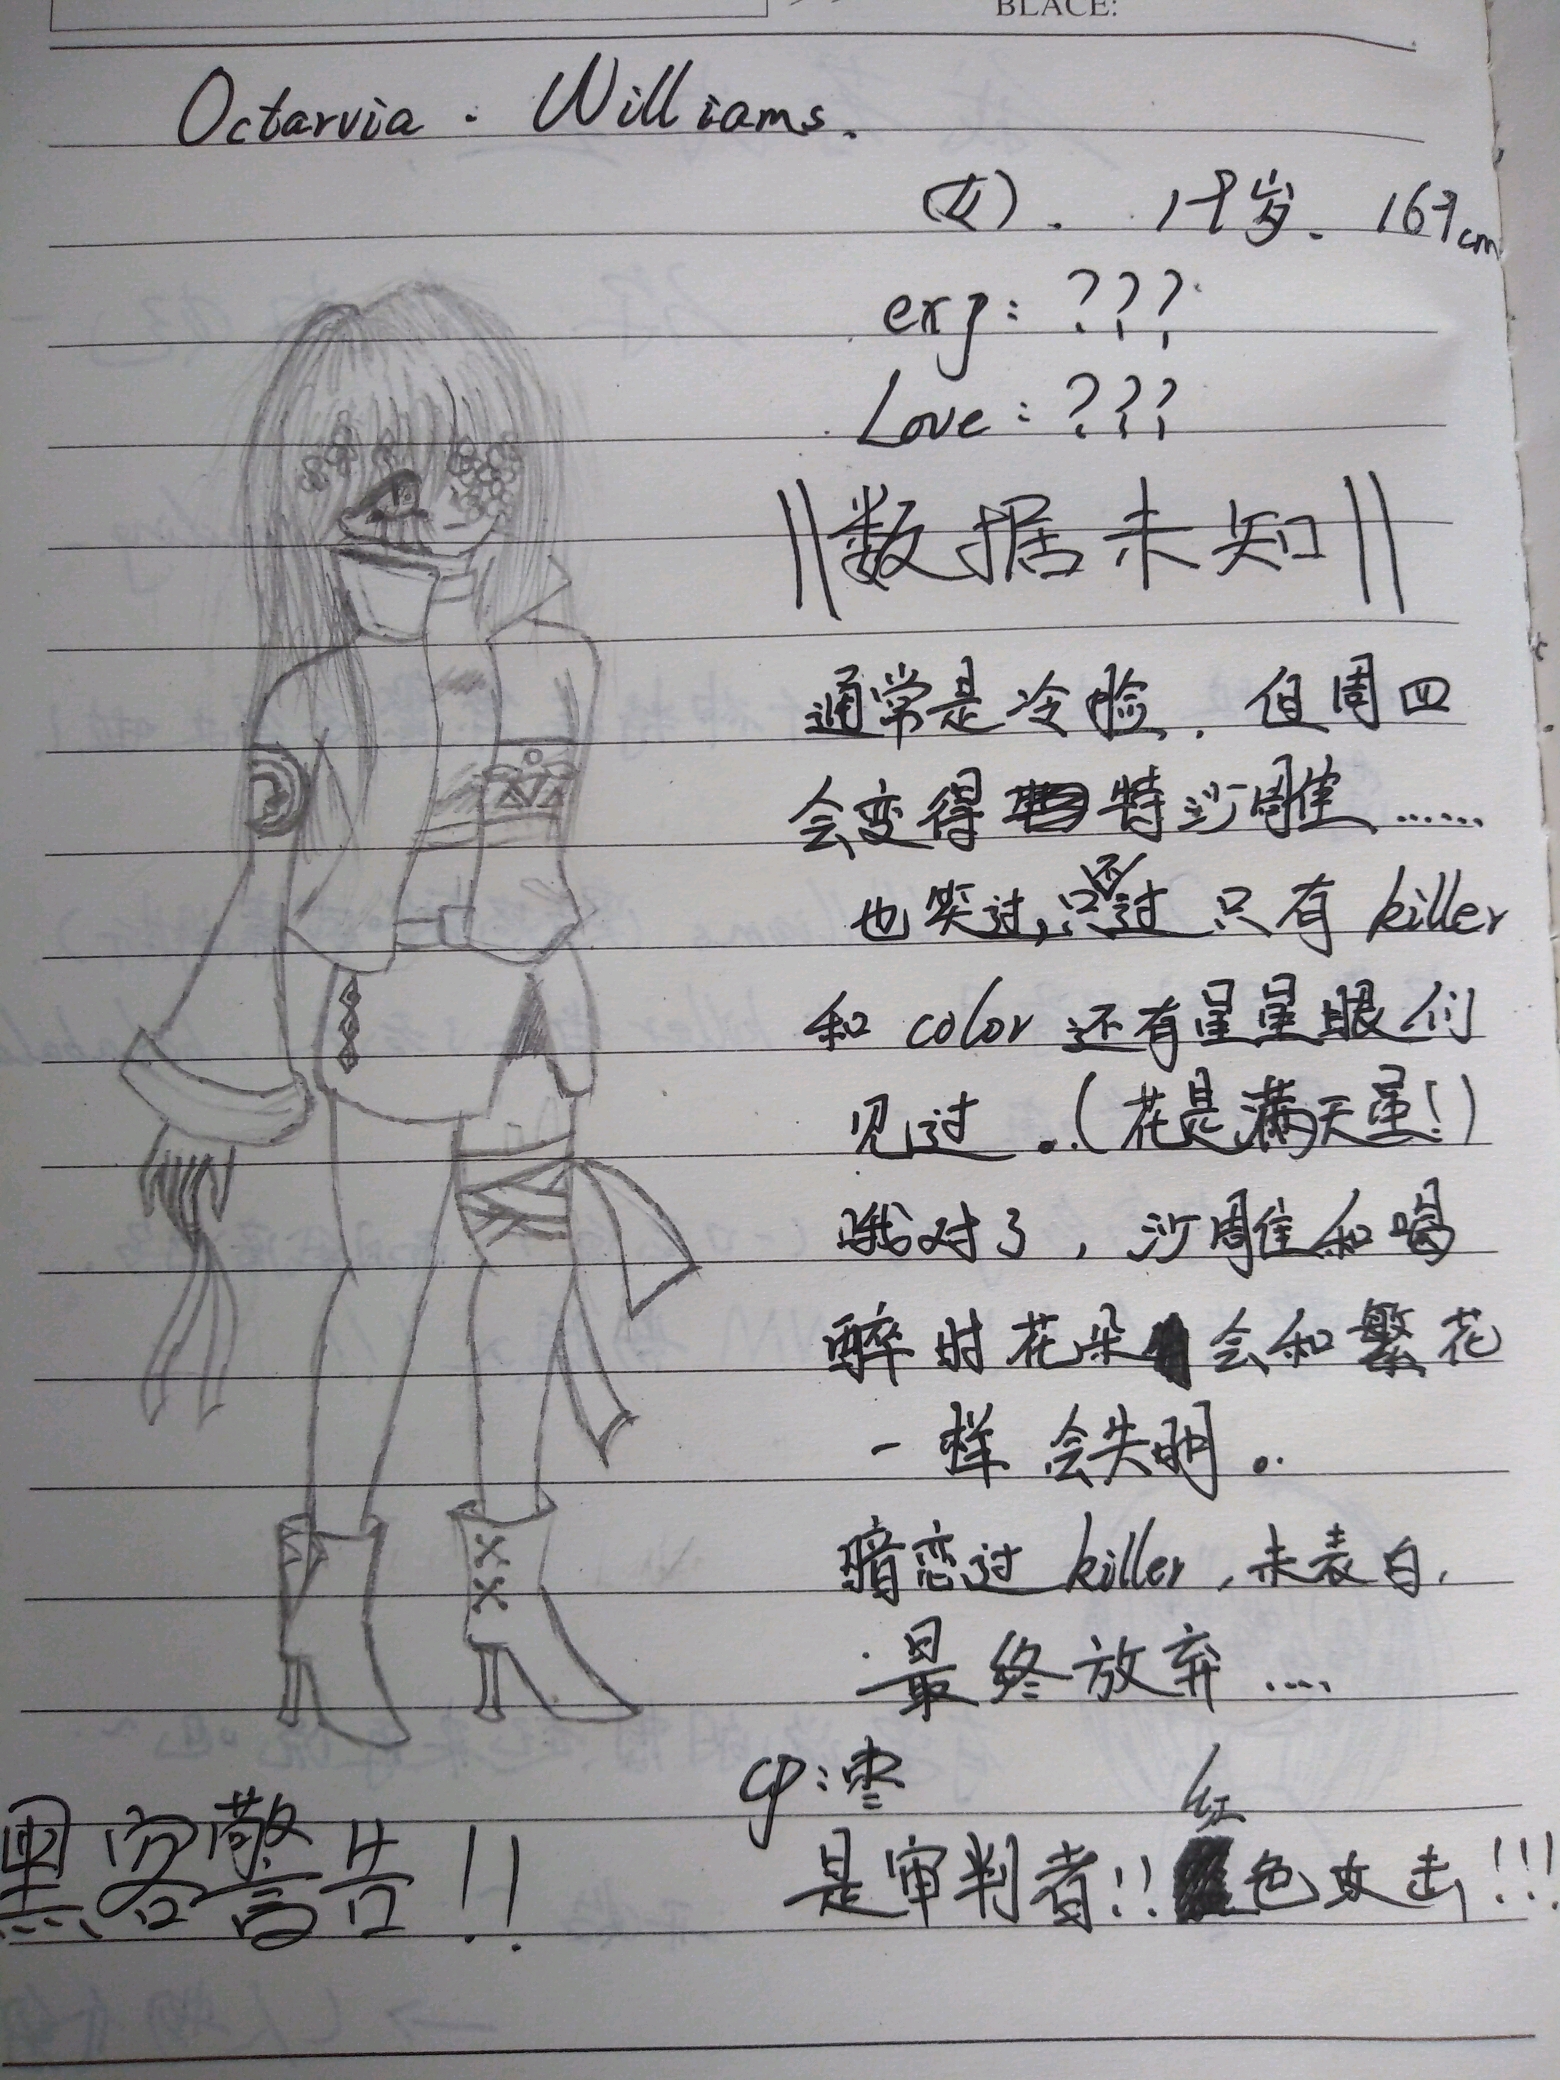 BLACE:
Octarvia . Williams.
(女). 19岁. 169cm
exp: ???
Love: ???
||数据未知||
通常是冷脸，但周四
会变得特沙雕……
也笑过，不过只有killer
和color还有星星眼们
见过。(花是满天星!)
哦对了，沙雕和喝
醉时花朵会和繁花
一样会失明。
暗恋过killer，未表白，
最终放弃....
cp:枣
是审判者!! 红色攻击!!!
黑客警告!!